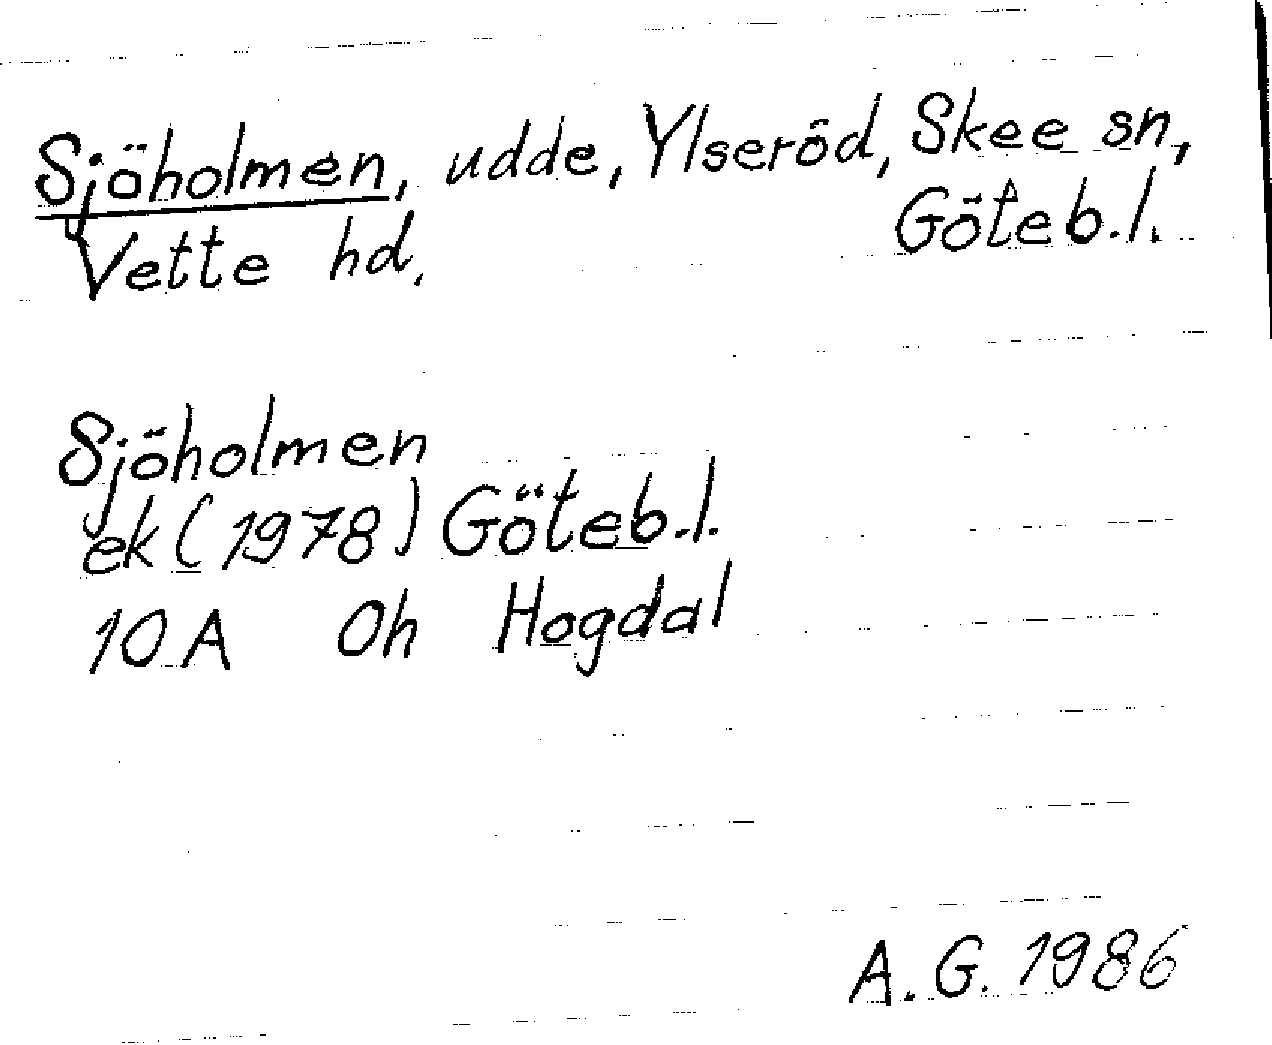 Sjöholmen, udde, Ylseröd, Skee sn,
Vette hd. Göteb.l.
Sjöholmen
ek (1978) Göteb.l.
10 A Oh Hogdal
A.G. 1986